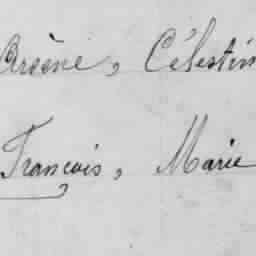 Arsène, Célestin
François, Marie